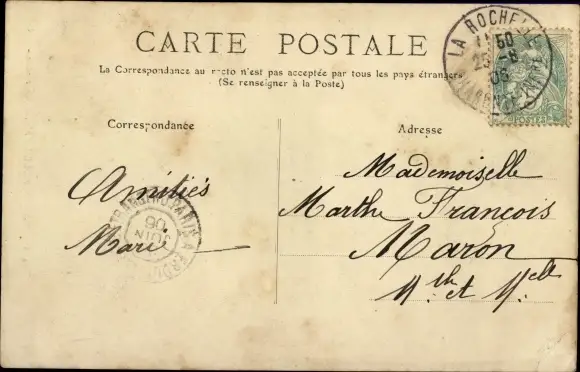 CARTE POSTALE
La Correspondance au recto n'est pas acceptée par tous les pays étrangers
(Se renseigner à la Poste)
LA ROCHELLE
11 50
25 -6
06
POSTES
Correspondance
Amitiés
Marie
JUIN
06
Adresse
Mademoiselle
Marthe François
Maron
Mth et Mlle